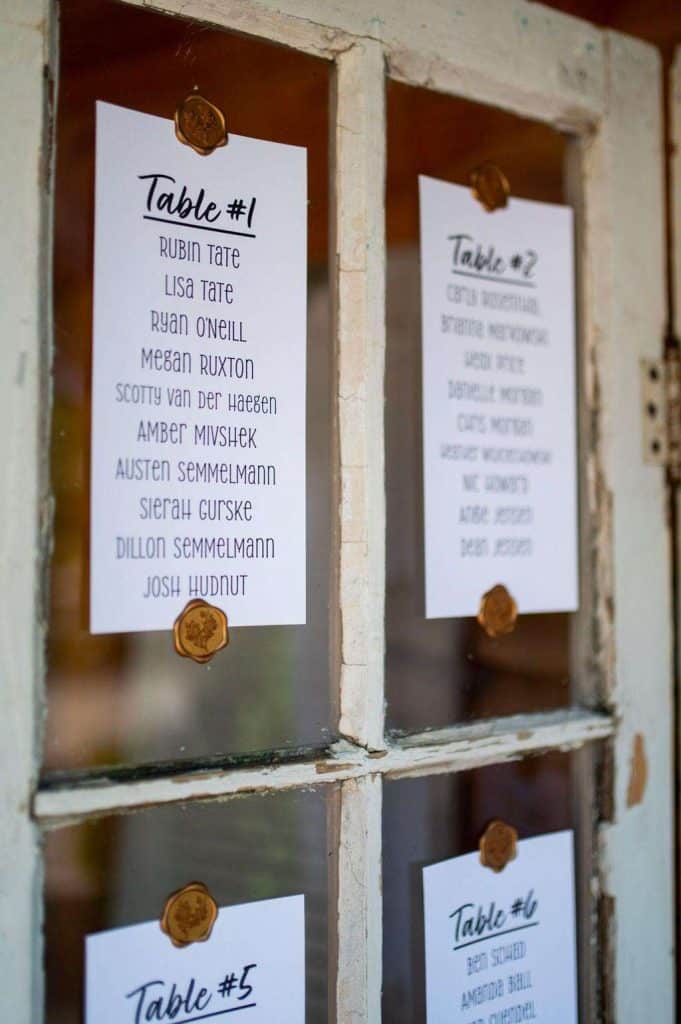 Table #1
RUBIN TATE
LISA TATE
RYAN O'NEILL
MEGAN RUXTON
SCOTTY VAN DER HAEGEN
AMBER MIVSHEK
AUSTEN SEMMELMANN
SIERAH GURSKE
DILLON SEMMELMANN
JOSH HUDNUT
Table #2
CARLY ROSENTHAL
BRIANNA MARKOWSKI
HEIDI PRICE
DANIELLE MORGAN
CHRIS MORGAN
HEATHER
NIC HOWARD
ANGIE JENSEN
DEAN JENSEN
Table #5
Table #6
BEN SCHAD
AMANDA BALL